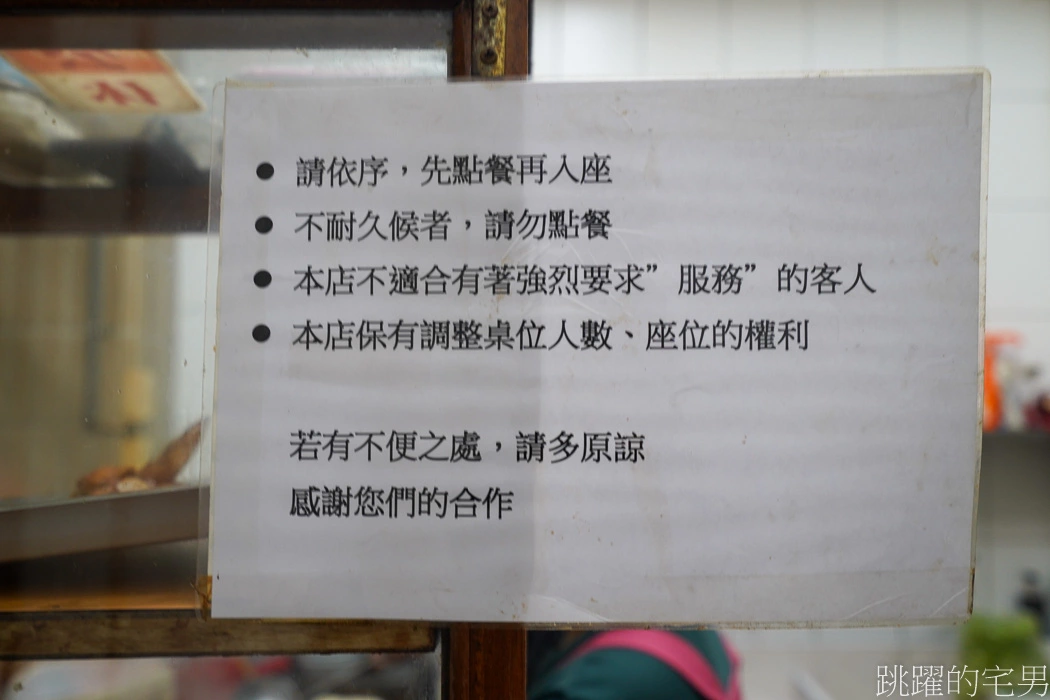 ● 請依序，先點餐再入座
● 不耐久候者，請勿點餐
● 本店不適合有著強烈要求”服務”的客人
● 本店保有調整桌位人數、座位的權利
若有不便之處，請多原諒
感謝您們的合作
跳躍的宅男